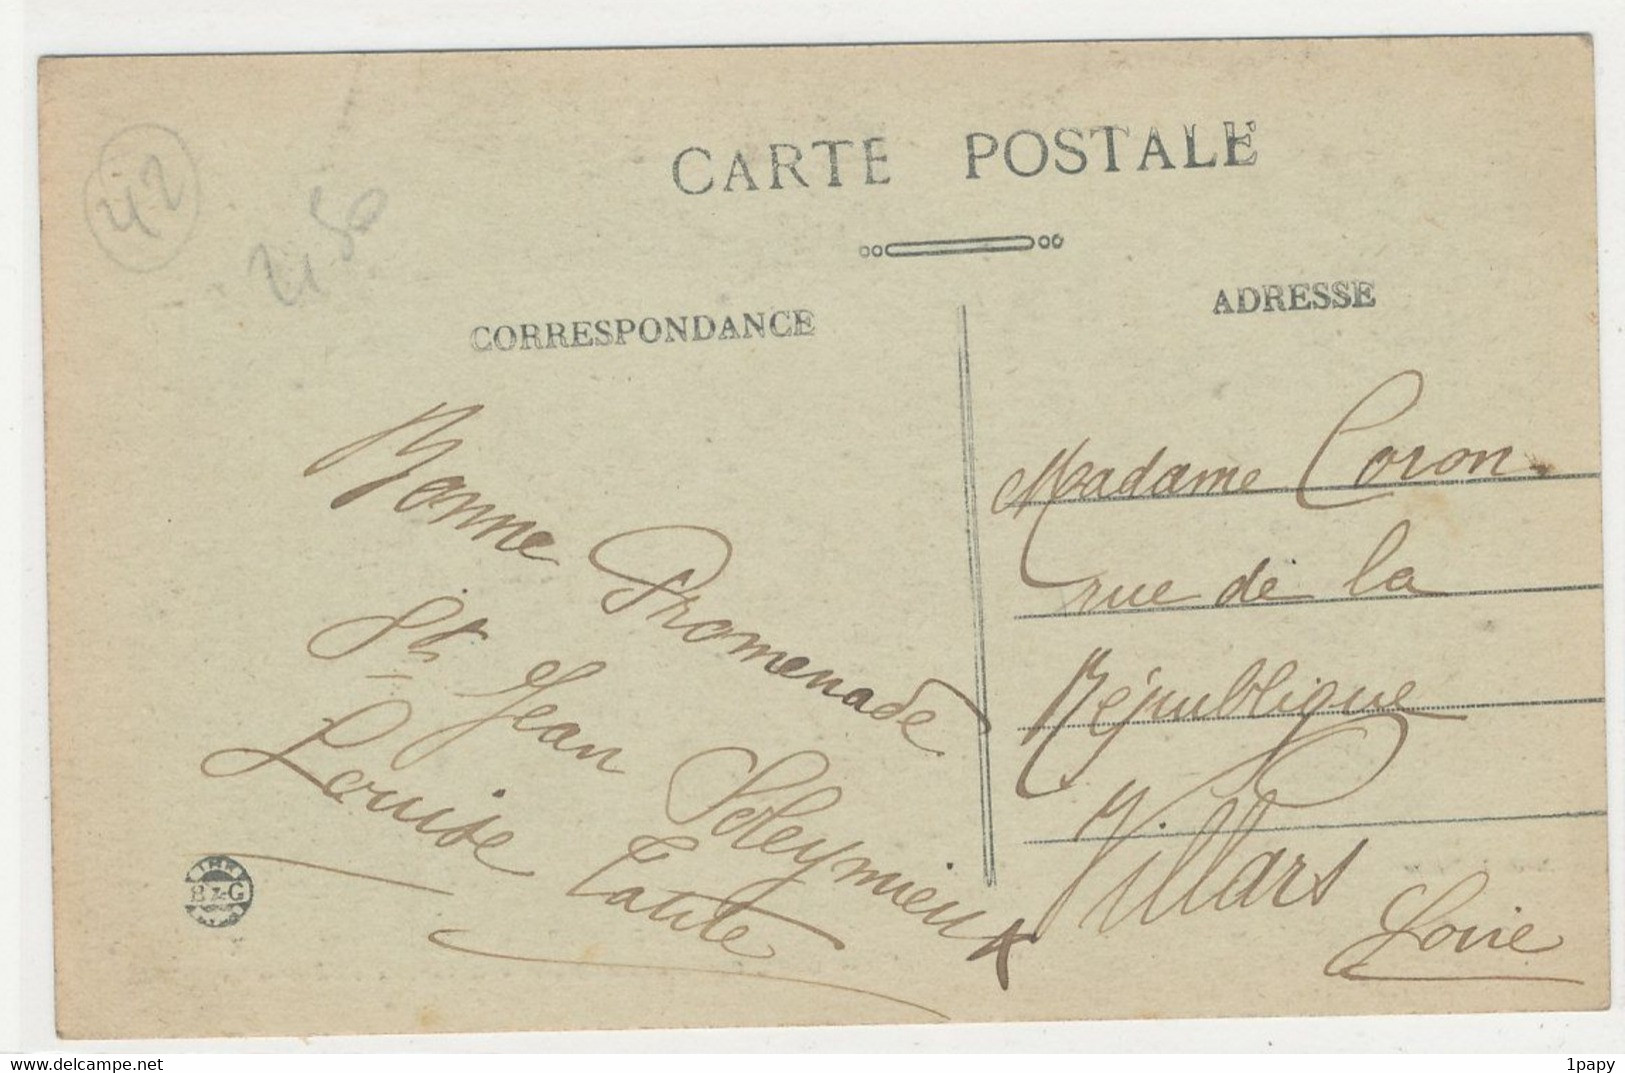 CARTE POSTALE
42
CORRESPONDANCE
ADRESSE
Bonne Promenade
St Jean Soleymieux
Louise
Madame Coron
rue de la
République
Villars
Loire
B & G
delcampe.net
1papy